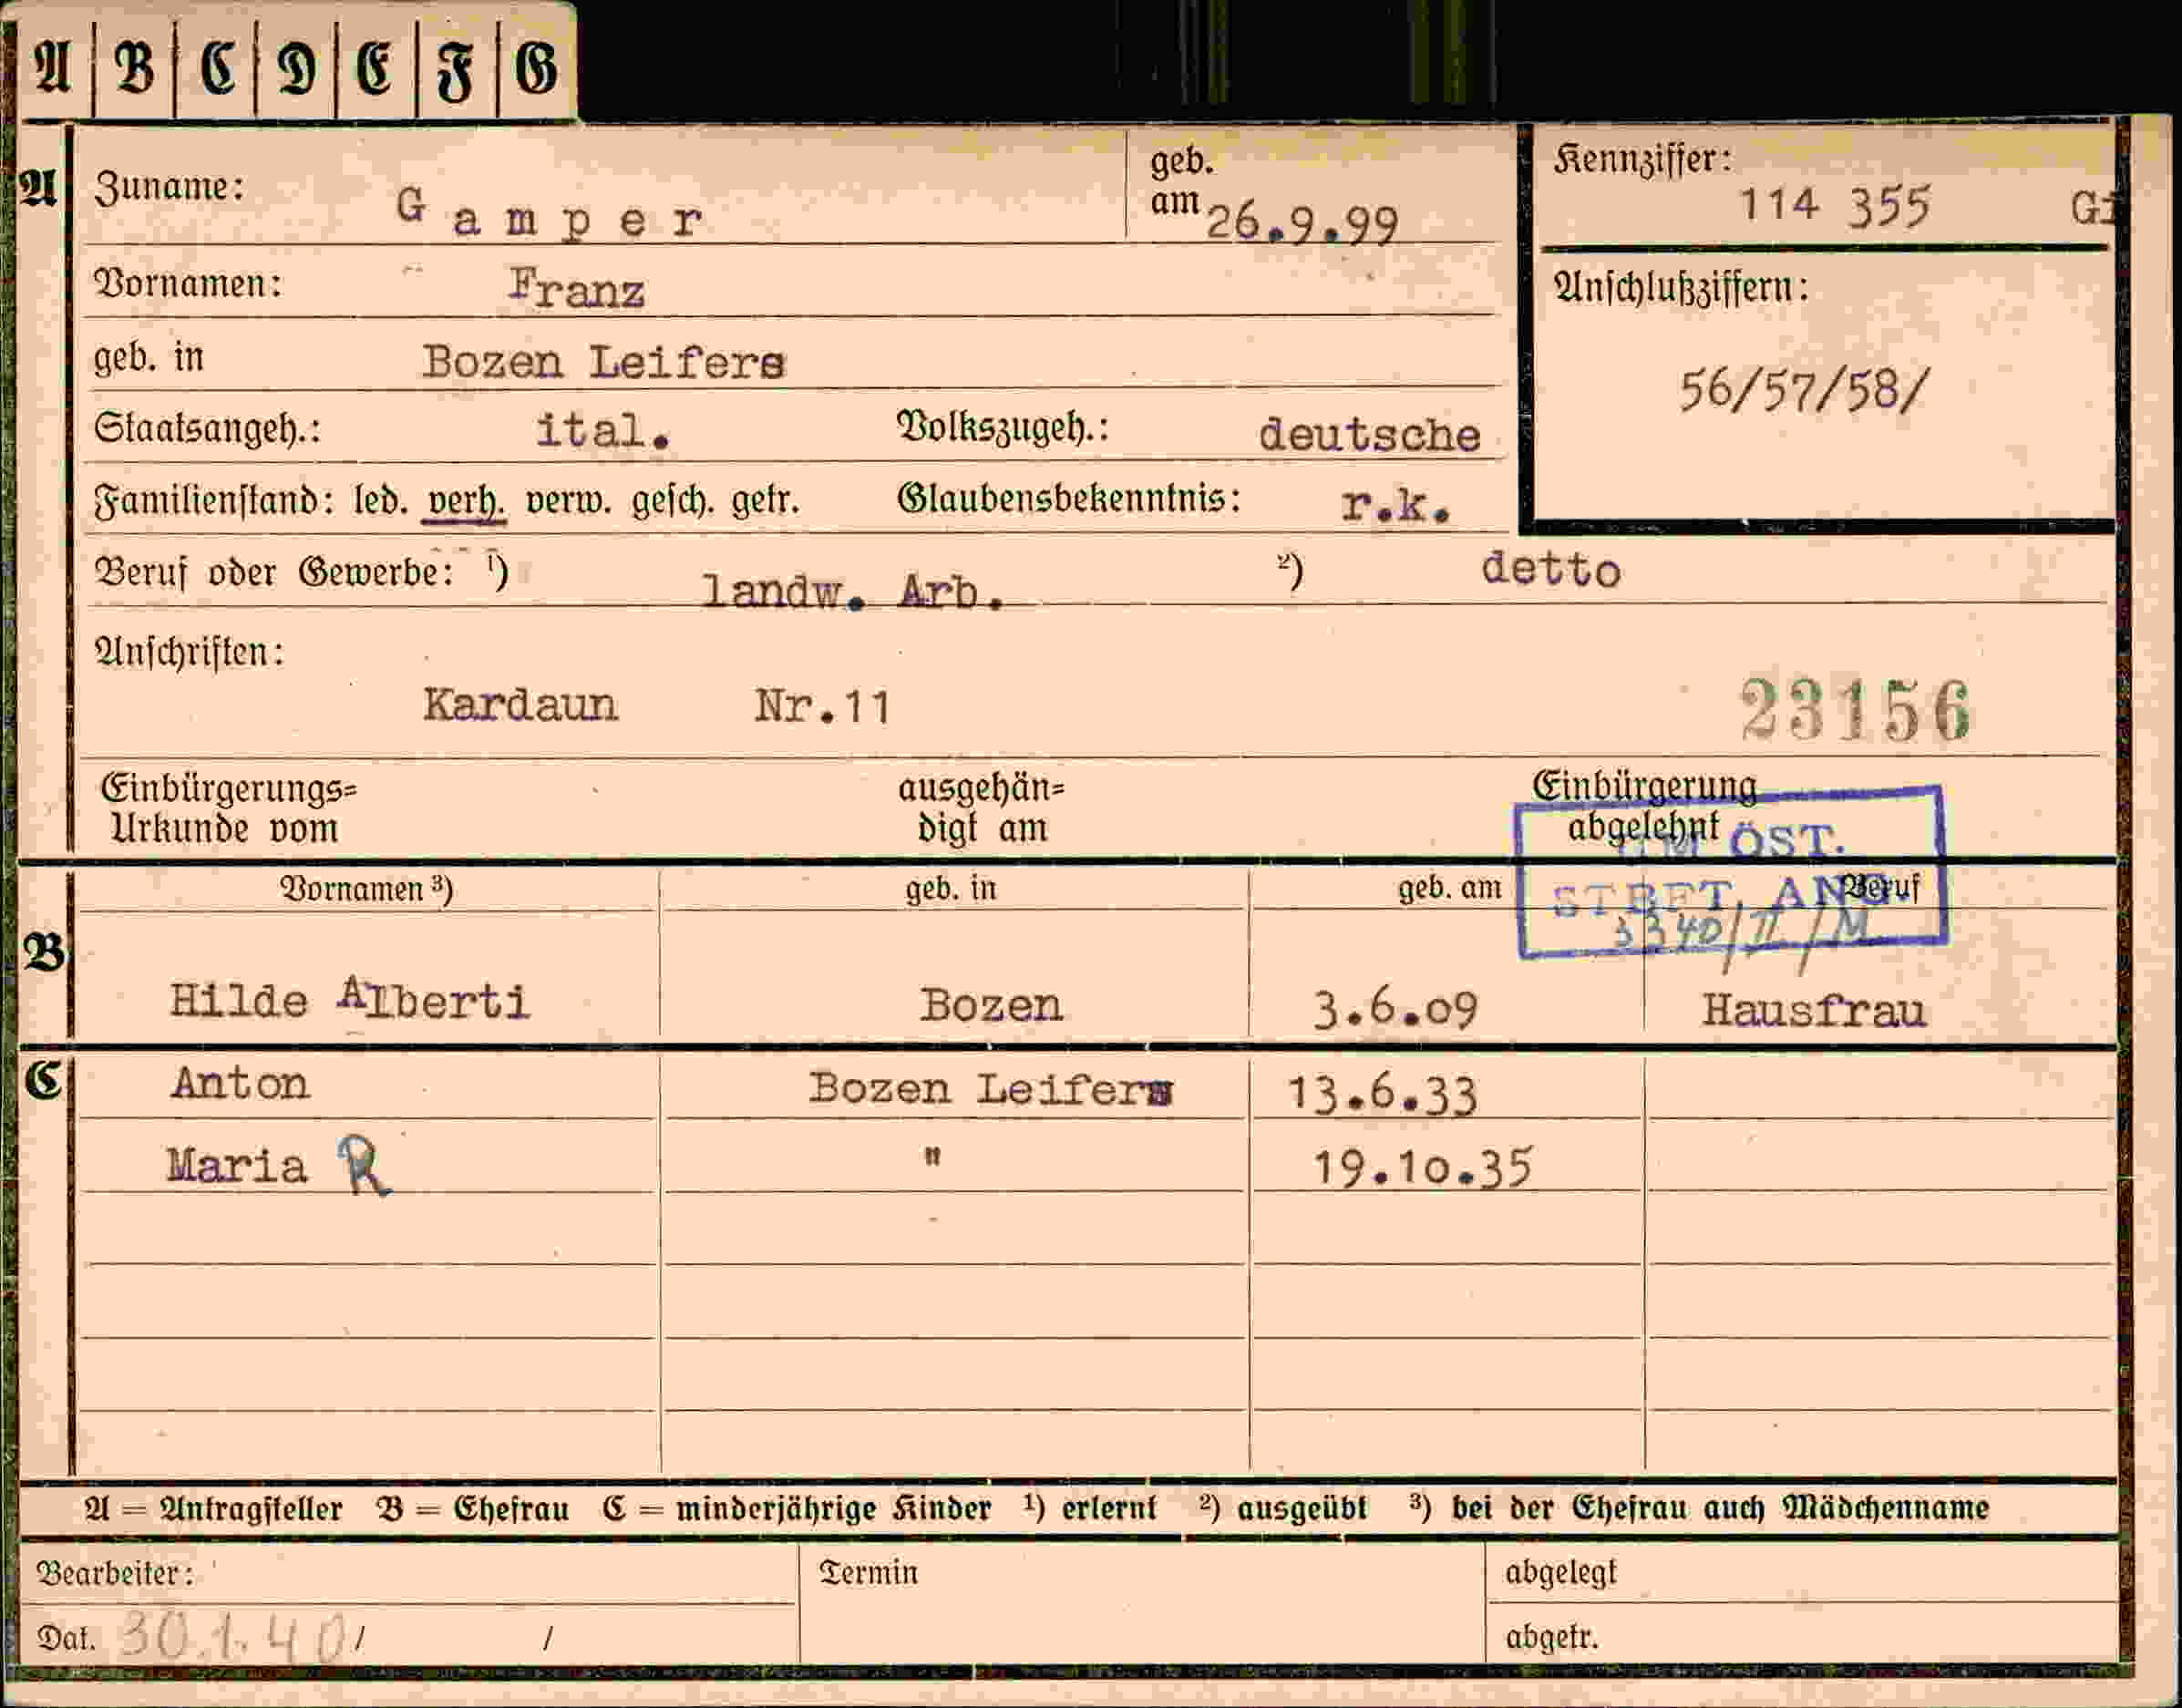 A B C D E F G
A Zuname: Gamper geb. am 26.9.99 Kennziffer: 114 355 Gi
Vornamen: Franz Anschlußziffern:
geb. in Bozen Leifers 56/57/58/
Staatsangeh.: ital. Volkszugeh.: deutsche
Familienstand: led. verh. verw. gesch. getr. Glaubensbekenntnis: r.k.
Beruf oder Gewerbe: ¹) landw. Arb. ²) detto
Anschriften:
Kardaun Nr.11 23156
Einbürgerungs= ausgehän= Einbürgerung
Urkunde vom digt am abgelehnt
ÖST.
Vornamen ³) geb. in geb. am Beruf
3340/II/M
B Hilde Alberti Bozen 3.6.09 Hausfrau
C Anton Bozen Leifers 13.6.33
Maria R " 19.10.35
A = Antragsteller B = Ehefrau C = minderjährige Kinder ¹) erlernt ²) ausgeübt ³) bei der Ehefrau auch Mädchenname
Bearbeiter: Termin abgelegt
Dat. 30.1.40/ / abgetr.